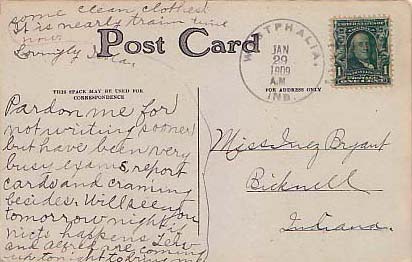 some clean, clothes!
It is nearly train time
now
Lovingly Iva.
Post Card
THIS SPACE MAY BE USED FOR
CORRESPONDENCE
FOR ADDRESS ONLY
WESTPHALIA,
JAN
29
1909
A.M.
IND.
1
Pardon me for
not writing sooner
but have been very
busy exams, report
cards and craming
besides. Will see you
tomorrow night if
nicts happens.
and Alfred are coming
up tonight to bring me
Miss Inez Bryant
Bicknell
Indiana.